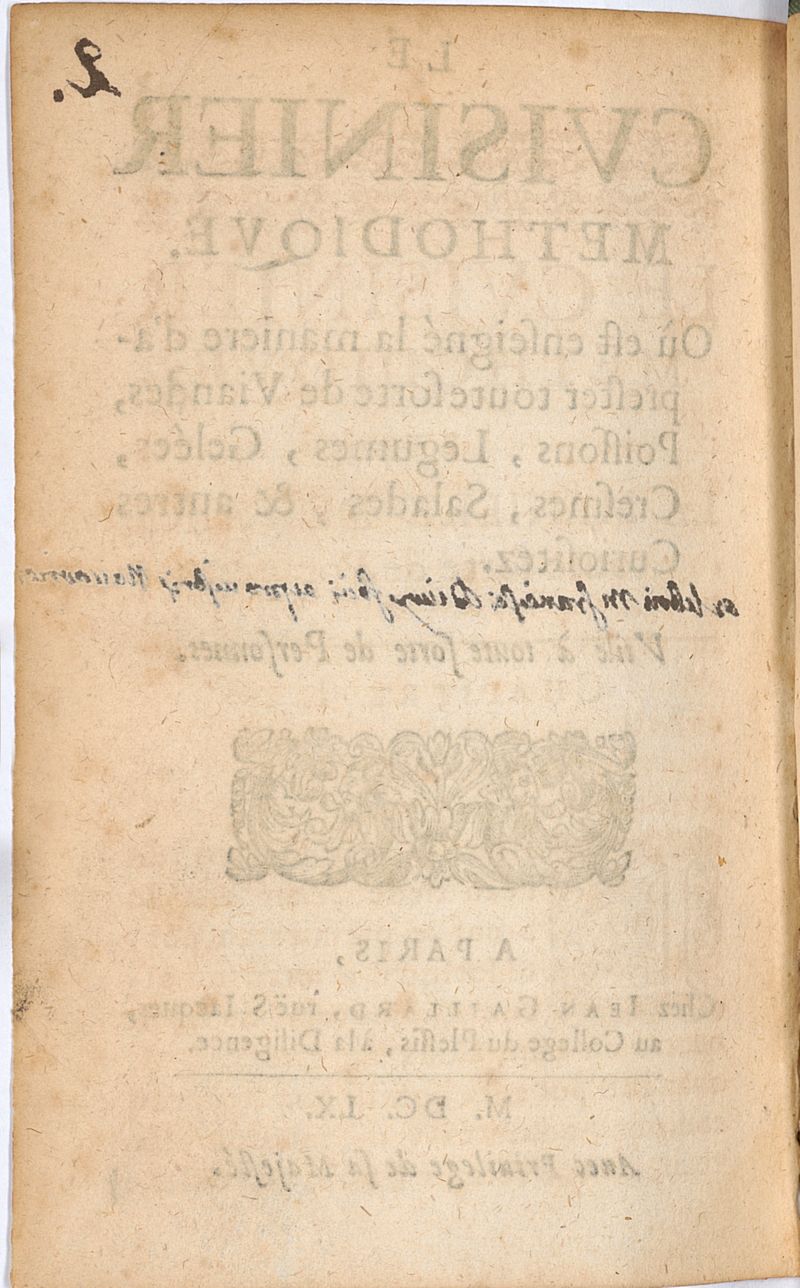 2.
LE
CVISINIER
METHODIQVE.
Où est enseigné la maniere d'a-
prester toute sorte de Viandes,
Poissons, Legumes, Gelées,
Cresmes, Salades, & autres
Curiositez.
Vtile à toute sorte de Personnes.
A PARIS,
Chez IEAN GAILLARD, ruë S. Iacques,
au College du Plessis, à la Diligence.
M. DC. LX.
Auec Priuilege de sa Majesté.